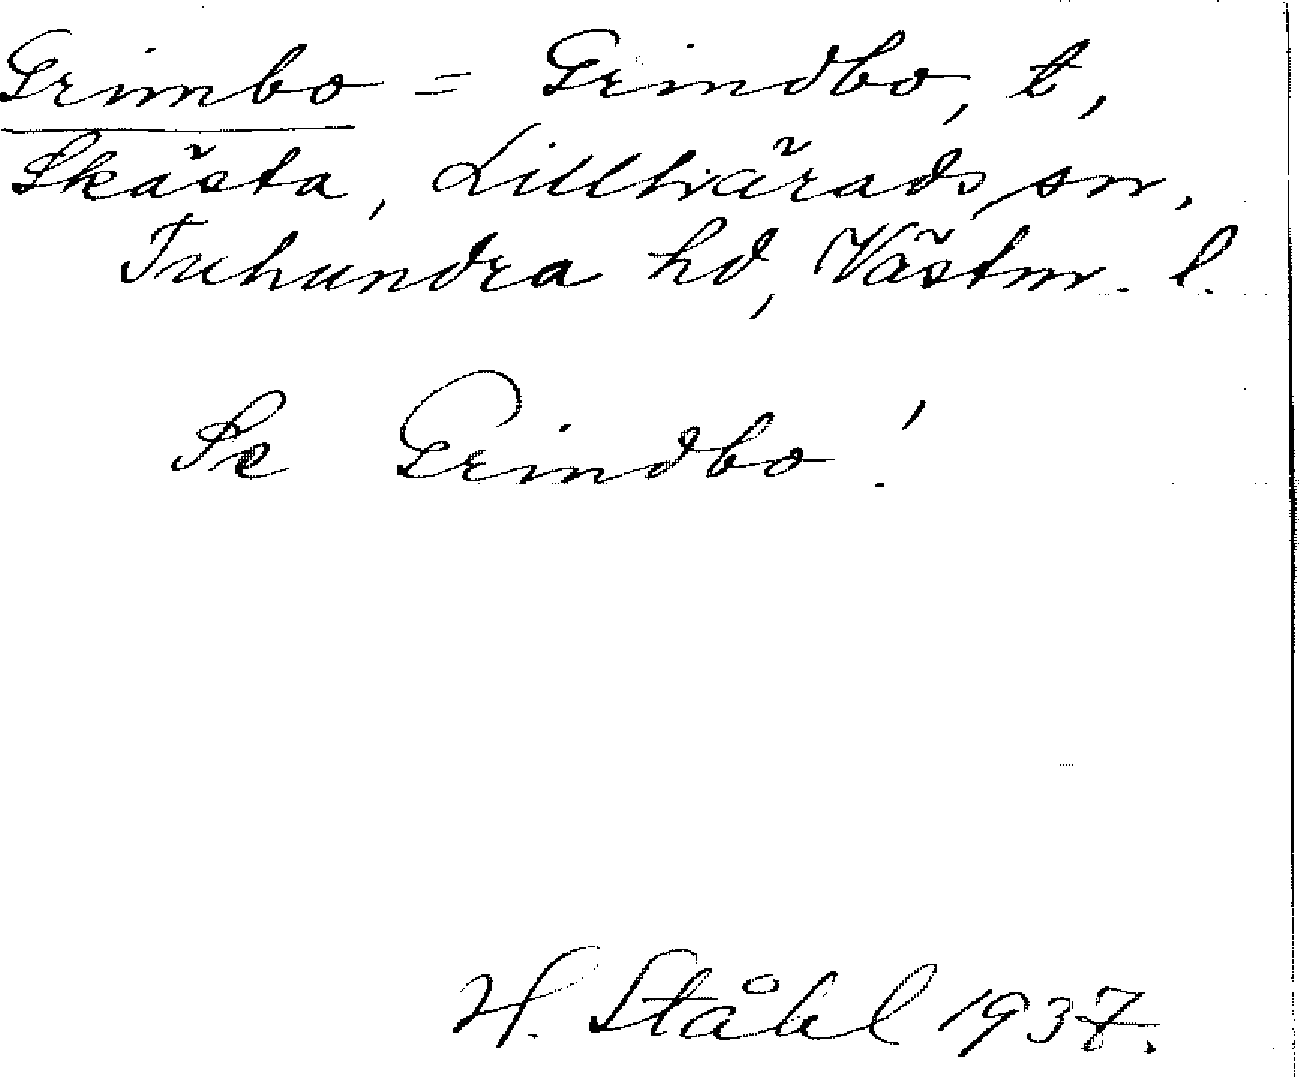 Grimbo = Grindbo, t,
Skästa, Lillhärads sn,
Tuhundra hd, Västm. l.
Se Grindbo!
H. Ståhl 1937.